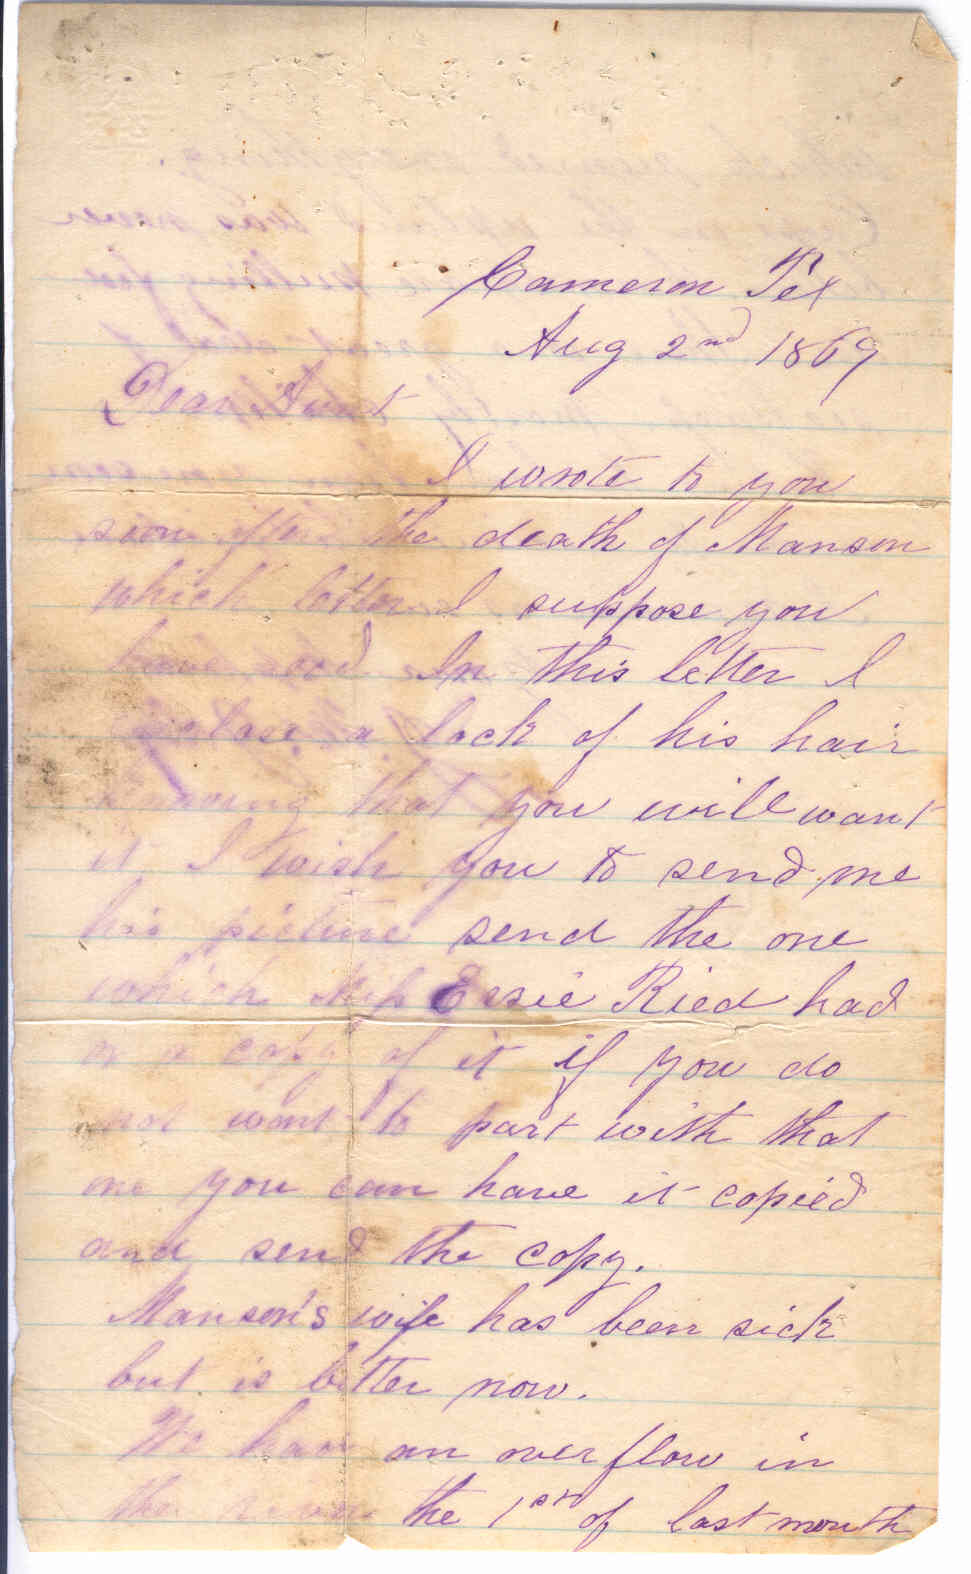 Cameron Tex
Aug 2nd 1869
Dear Aunt
I wrote to you
soon after the death of Manson
which letter I suppose you
have rec'd In this letter I
inclose a lock of his hair
knowing that you will want
it I wish you to send me
his picture send the one
which Miss Essie Ried had
or a copy of it if you do
not want to part with that
one you can have it copied
and send the copy.
Manson's wife has been sick
but is better now.
We have an over flow in
the river the 1st of last month